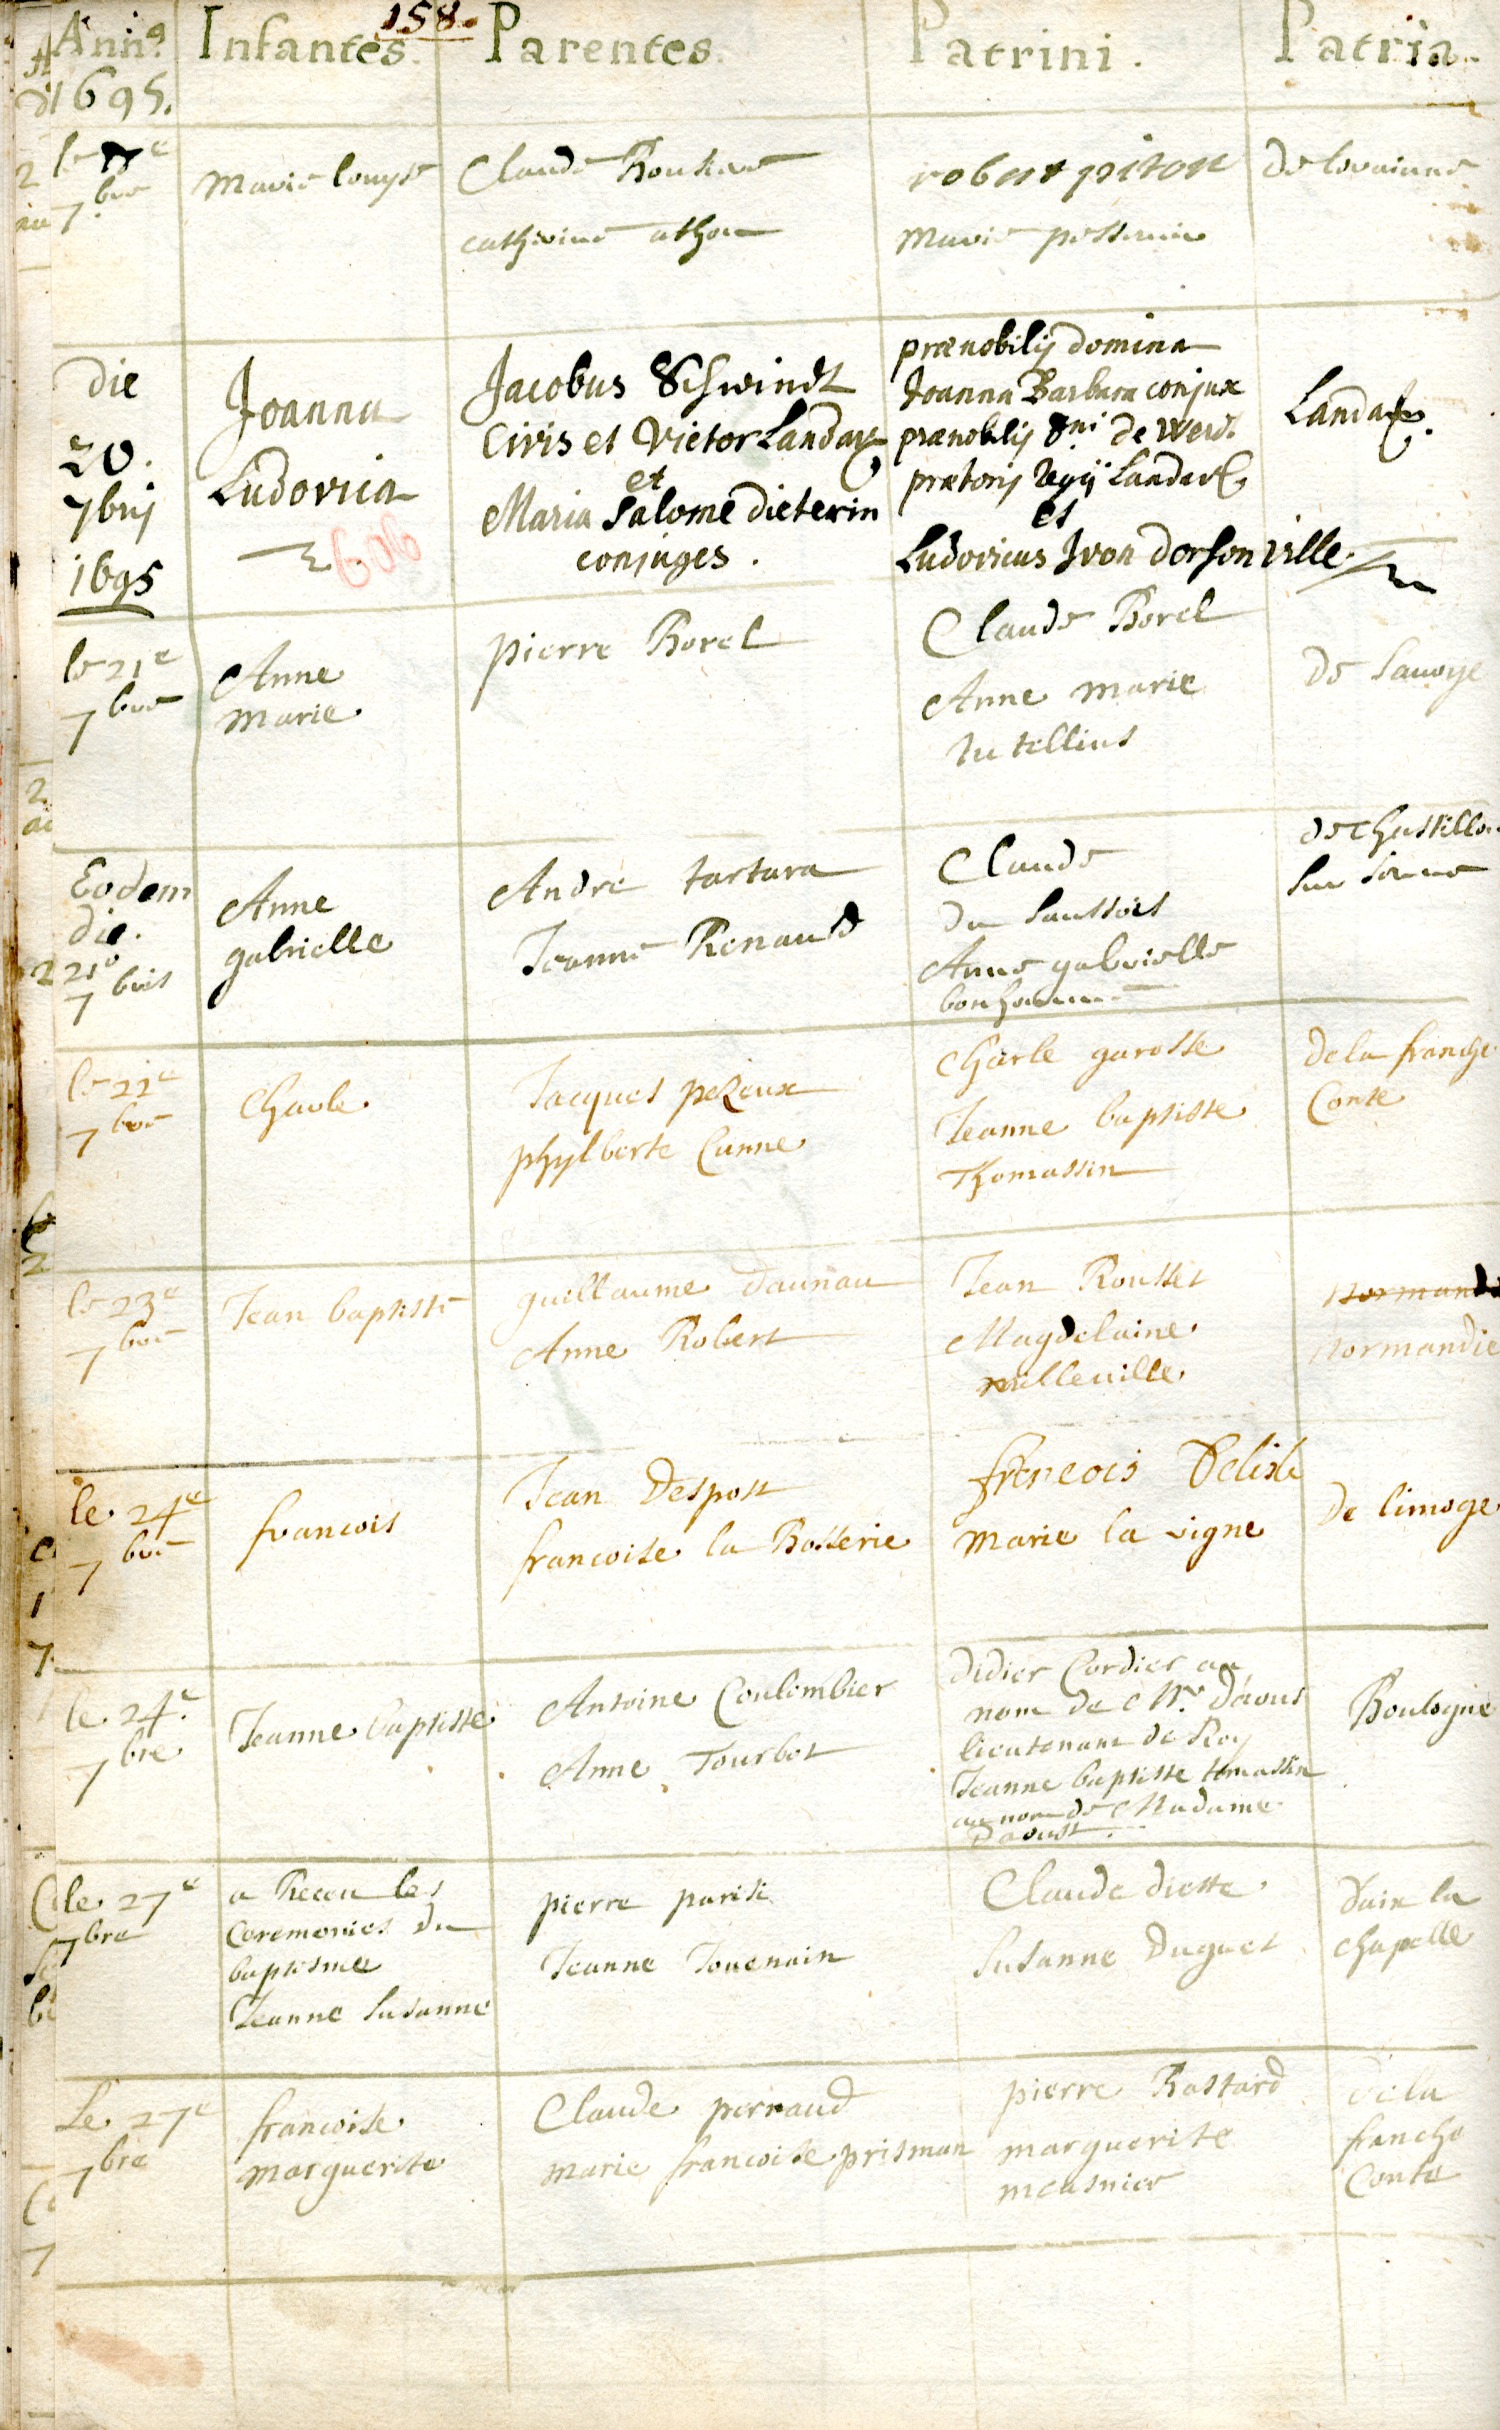 158.
Ann.o Infantes. Parentes. Patrini. Patria.
1695.
le e
7 bre
Marie louyse
Claude
catherine athon
robert piton
Marie
de loraine
Die
20.
7brij
1695
Joanna
Ludovica
606
Jacobus Schwindt
Civis et Vietor Landav.
et
Maria Salome dieterin
conjuges.
prænobilis domina
Joanna Barbara conjux
prænobilis Dni de Werd.
prætoris regij Landav.
et
Ludovicus Ivon dorsonville.
Landav.
le 21e
7 bre
Anne
marie
pierre Borel
Claude Borel
Anne marie
de Savoye
Eodem
die.
21o
7 bris
Anne
gabrielle
Andre tartara
Jeanne Renaud
Claude
du Saussois
Anne gabrielle
bonhomme
de Chastillon
sur
le 22e
7 bre
Charle
Jacques pezeux
phylberte Cunne
Charle garosse
Jeanne baptiste
Thomassin
de la franche
Conte
le 23e
7 bre
Jean baptiste
guillaume daunau
Anne Robert
Jean Rousset
Magdelaine
milleville
normandi
normandie
le 24e
7 bre
francois
Jean Despost
francoise la Bosserie
francois Delisle
Marie la vigne
De limoge
le 24.e
7 bre
Jeanne baptiste
Antoine Coulombier
Anne Tourbot
Didier Cordier au
nom de Mr. Daous
lieutenant de Roy
Jeanne baptiste tomassin
au nom de Madame
Daoust.
Boulogne
le 27e
7bre
a Receu les
Ceremonies du
baptisme
Jeanne Susanne
pierre parisi
Jeanne Jouenain
Claude diette
Susanne Duguet
d'aix la
chapelle
Le 27e
7bre
francoise
marguerite
Claude pernaud
marie francoise prisman
pierre Bastard
marguerite
meusnier
de la
franche
Conte